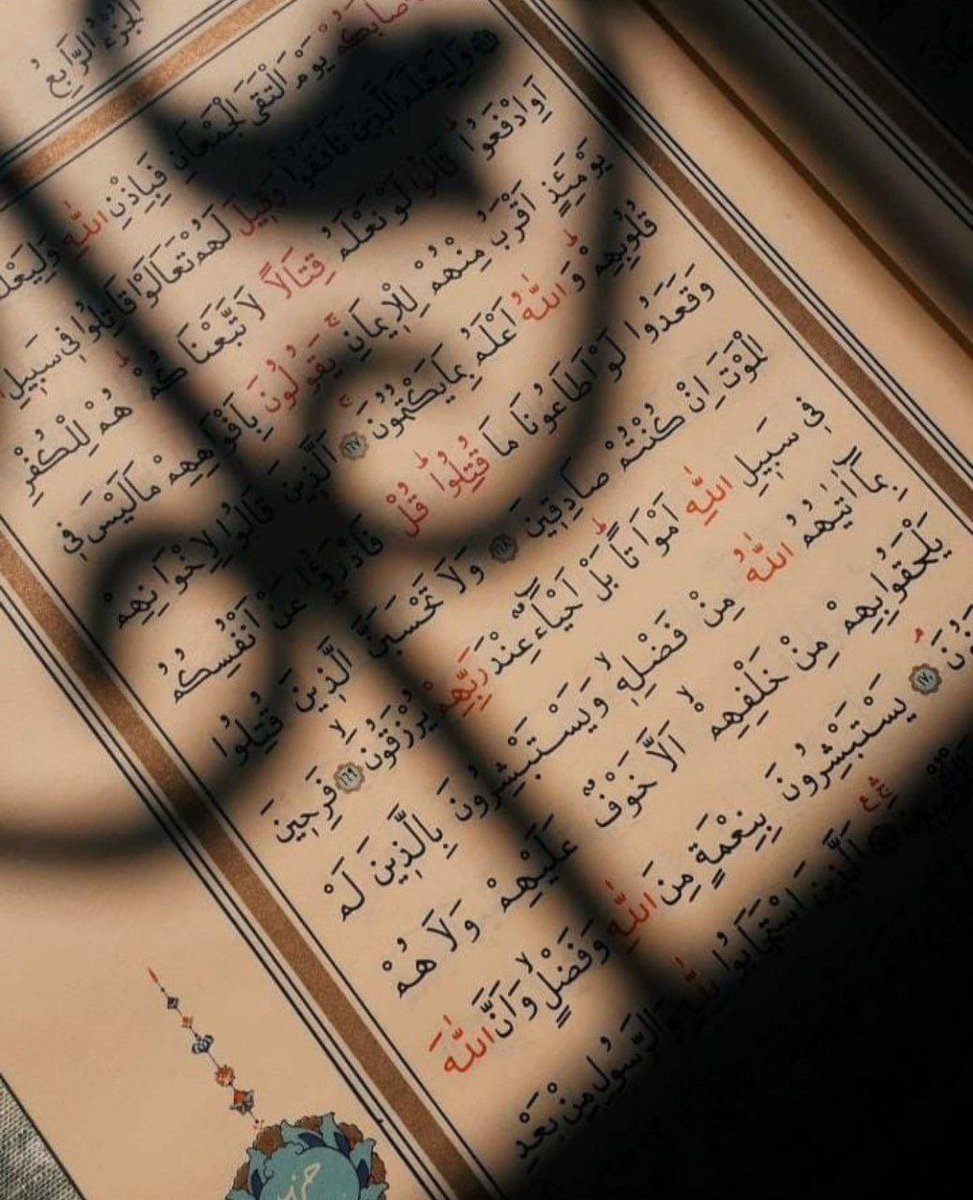 الْجُزْءُ الرَّابِعُ
صَابَكُمْ يَوْمَ الْتَقَى الْجَمْعَانِ فَبِاِذْنِ اللّٰهِ وَلِيَعْلَمَ
وَلِيَعْلَمَ الَّذِينَ نَافَقُوا وَقِيلَ لَهُمْ تَعَالَوْا قَاتِلُوا فِى سَبِيلِ
اَوِ ادْفَعُوا قَالُوا لَوْ نَعْلَمُ قِتَالًا لَا تَّبَعْنَا كُمْ هُمْ لِلْكُفْرِ
يَوْمَئِذٍ اَقْرَبُ مِنْهُمْ لِلْاِيمَانِ يَقُولُونَ بِاَفْوَاهِهِمْ مَا لَيْسَ فِى
قُلُوبِهِمْ وَاللّٰهُ اَعْلَمُ بِمَا يَكْتُمُونَ ١٦٧ اَلَّذِينَ قَالُوا لِاِخْوَانِهِمْ
وَقَعَدُوا لَوْ اَطَاعُونَا مَا قُتِلُوا قُلْ فَادْرَؤُا عَنْ اَنْفُسِكُمُ
الْمَوْتَ اِنْ كُنْتُمْ صَادِقِينَ ١٦٨ وَلَا تَحْسَبَنَّ الَّذِينَ قُتِلُوا
فِى سَبِيلِ اللّٰهِ اَمْوَاتًا بَلْ اَحْيَاءٌ عِنْدَ رَبِّهِمْ يُرْزَقُونَ ١٦٩ فَرِحِينَ
بِمَا اٰتٰيهُمُ اللّٰهُ مِنْ فَضْلِهِ وَيَسْتَبْشِرُونَ بِالَّذِينَ لَمْ
يَلْحَقُوا بِهِمْ مِنْ خَلْفِهِمْ اَلَّا خَوْفٌ عَلَيْهِمْ وَلَا هُمْ
١٧٠ يَسْتَبْشِرُونَ بِنِعْمَةٍ مِنَ اللّٰهِ وَفَضْلٍ وَاَنَّ اللّٰهَ
اَلَّذِينَ اسْتَجَابُوا لِلّٰهِ وَالرَّسُولِ مِنْ بَعْدِ